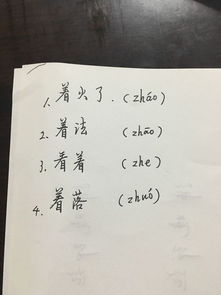 1. 着火了. (zháo)
2. 着法 (zhāo)
3. 看着 (zhe)
4. 着落 (zhuó)